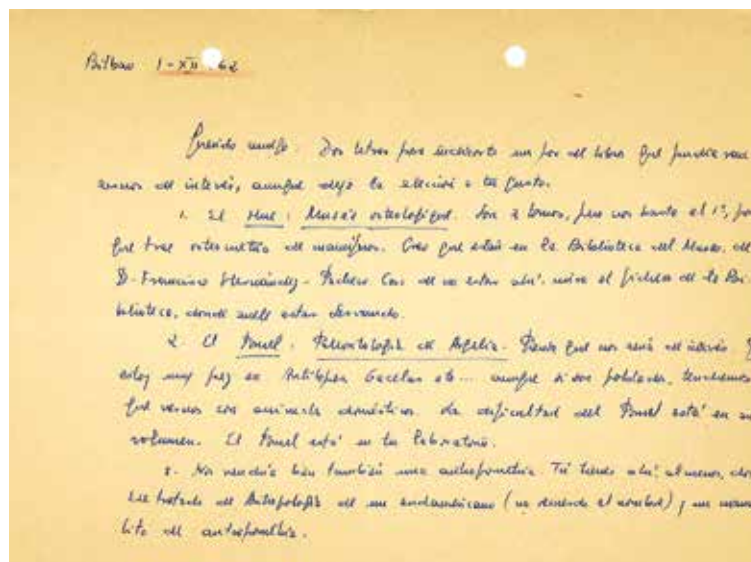 Bilbao 1-XII-62
Querido amigo: Dos letras para indicarte un par de libros que podría
de interés, aunque dejo la elección a tu gusto.
1. El Hue: Museé osteologique. Son 2 tomos, pero nos basta el 1º, por
que trae osteometría de mamíferos. Creo que están en la Biblioteca del Museo, de
D. Francisco Hernández-Pacheco. Caso de no estar ahí, mira el fichero de la Bi-
blioteca, donde suele estar Bernardo.
2. El Pomel. Paleontología de Argelia. Pienso que nos será de interés.
estoy muy pez en Antílopes Gacelas etc... aunque si son pobladores, tendremos
que vernos con animales domésticos. La dificultad del Pomel está en su
volumen. El Pomel está en tu Laboratorio.
3. Nos vendría bien también una antropometría. Tú tienes ahí, al menos,
tratado de Antropología de un sudamericano (no recuerdo el nombre) y un
lito de antropometría.